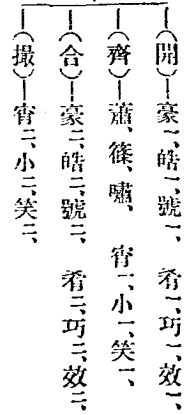 (開)—豪一、皓一、號一、 肴一、巧一、效一、
(齊)—蕭、篠、嘯、 宵一、小一、笑一、
(合)—豪二、皓二、號二、 肴二、巧二、效二、
(撮)—宵二、小二、笑二、